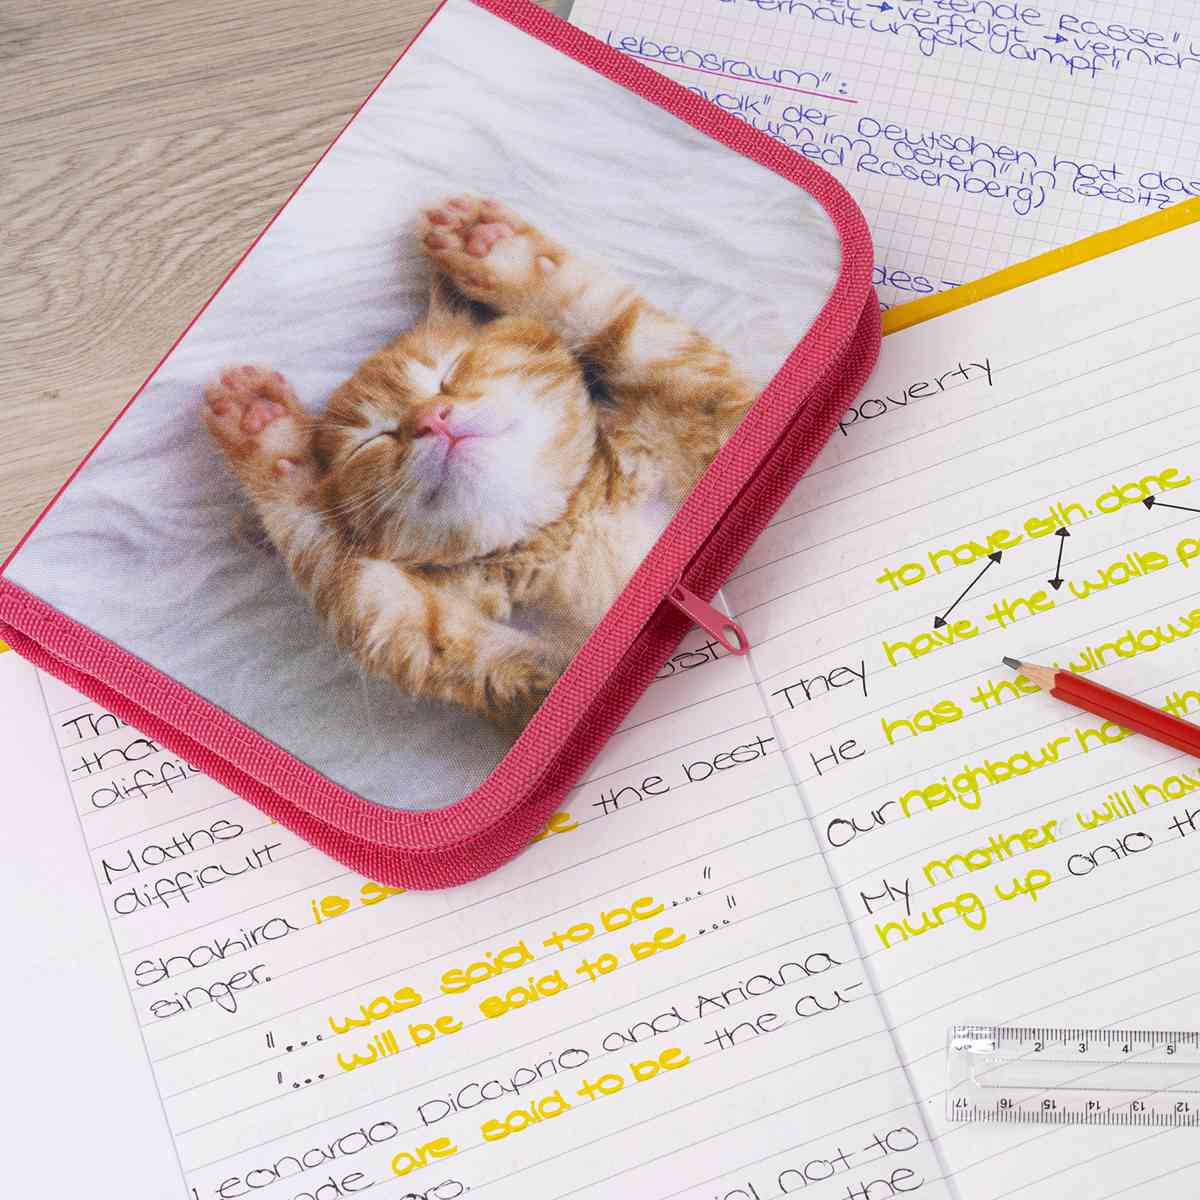 zende Rasse"
→ verfolgt → vernich
erhaltungskampf"
"Lebensraum":
volk" der Deutschen hat das
um im Osten" in Besitz
red Rosenberg)
des
poverty
to have sth. done
They have the walls p
He has the windows
Our neighbour has th
My mother will hav
hung up onto th
ost
Th
tha
diffic
Maths the best
difficult
Shakira is s
singer.
"... was said to be..."
"... will be said to be ..."
Leonardo DiCaprio and Ariana
nde are said to be the cu-
ors.
not to
the
2 3 4 5
17 16 15 14 13 12